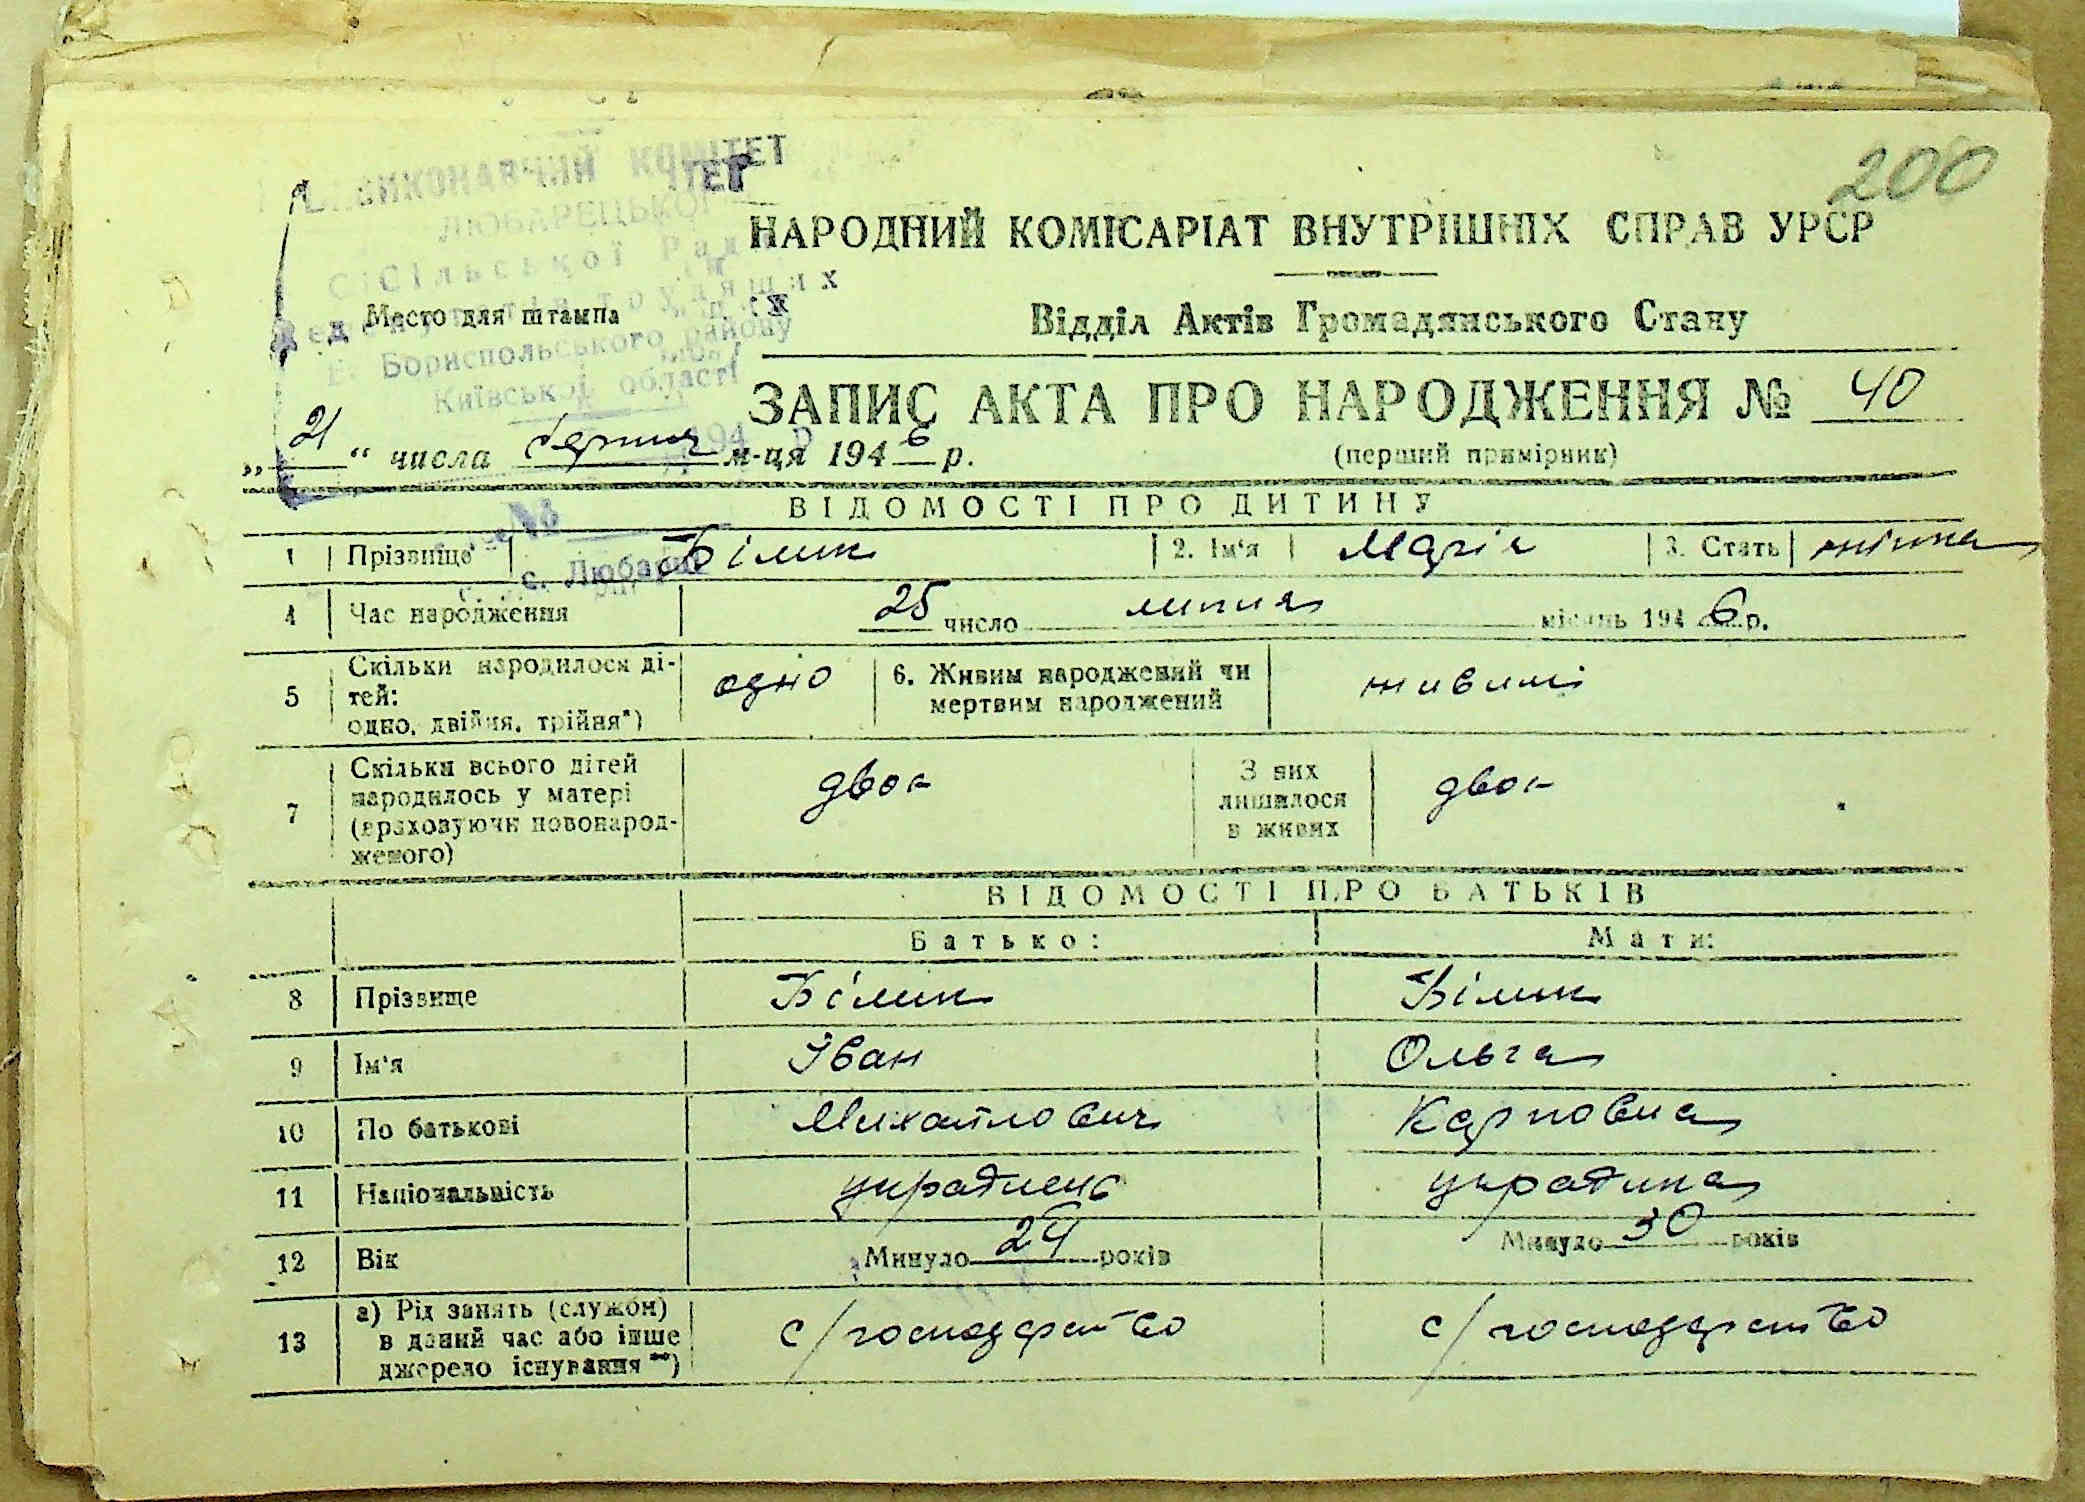 200
ВИКОНАВЧИЙ КОМІТЕТ
ЛЮБАРЕЦЬКОЇ
Сільської Ради
Бориспольського району
Київської області
НАРОДНИЙ КОМІСАРІАТ ВНУТРІШНІХ СПРАВ УРСР
Место для штампа
Відділ Актів Громадянського Стану
ЗАПИС АКТА ПРО НАРОДЖЕННЯ № 40
„21“ числа серпня м-ця 1946 р.
(перший примірник)
ВІДОМОСТІ ПРО ДИТИНУ
№
с. Любарці
1 Прізвище Білик 2. Ім'я Марія 3. Стать жіноча
4 Час народження 25 число липня місяць 1946 р.
5 Скільки народилося дітей: одно, двійня, трійня*) одно 6. Живим народжений чи мертвим народжений живими
7 Скільки всього дітей народилось у матері (враховуючи новонародженого) двоє З них лишилося в живих двоє
ВІДОМОСТІ ПРО БАТЬКІВ
Батько: Мати:
8 Прізвище Білик Білик
9 Ім'я Іван Ольга
10 По батькові Михайлович Карповна
11 Національність українець українка
12 Вік Минуло 29 років Минуло 30 років
13 а) Рід занять (служби) в даний час або інше джерело існування**) с/господарство с/господарство